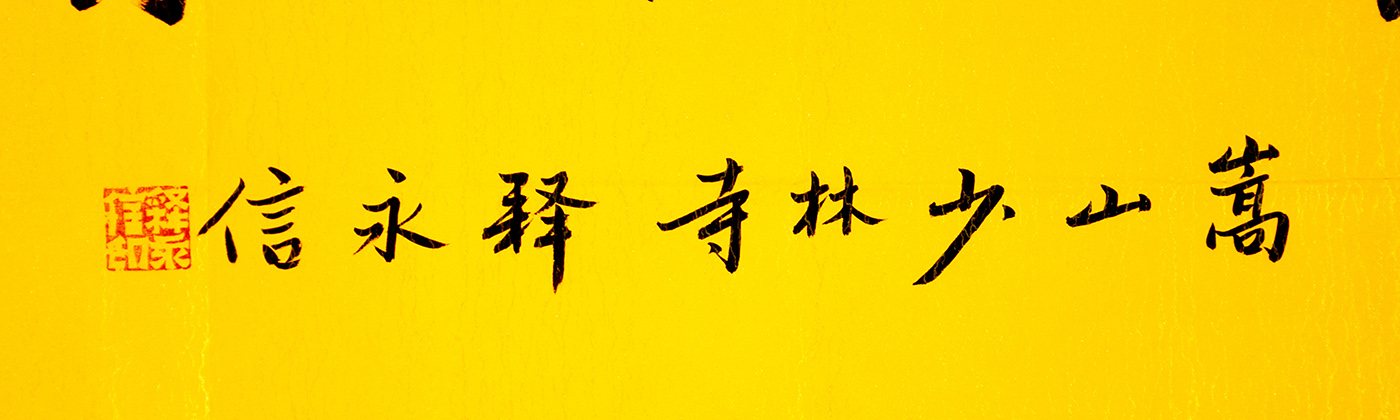 嵩山少林寺 释永信
释永信印